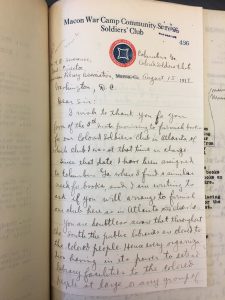 Macon War Camp Community Service
Soldiers' Club
496
Columbus Ga
August 15, 1918
Director
Library Association
Washington, D. C.
Dear Sir:
I wish to thank you for
your of the 8th note promising to furnish books
for our Colored Soldiers Club in Atlanta of
which club I was at that time in charge
Since that date I have been assigned
to Columbus Ga where I find a similar
need for books, and I am writing to
ask if you will arrange to furnish
our club here as in Atlanta
You are doubtless aware that throughout
the south the public libraries are closed to
the colored people. Hence every
having in its power to
library facilities to the colored
people at large or any group of